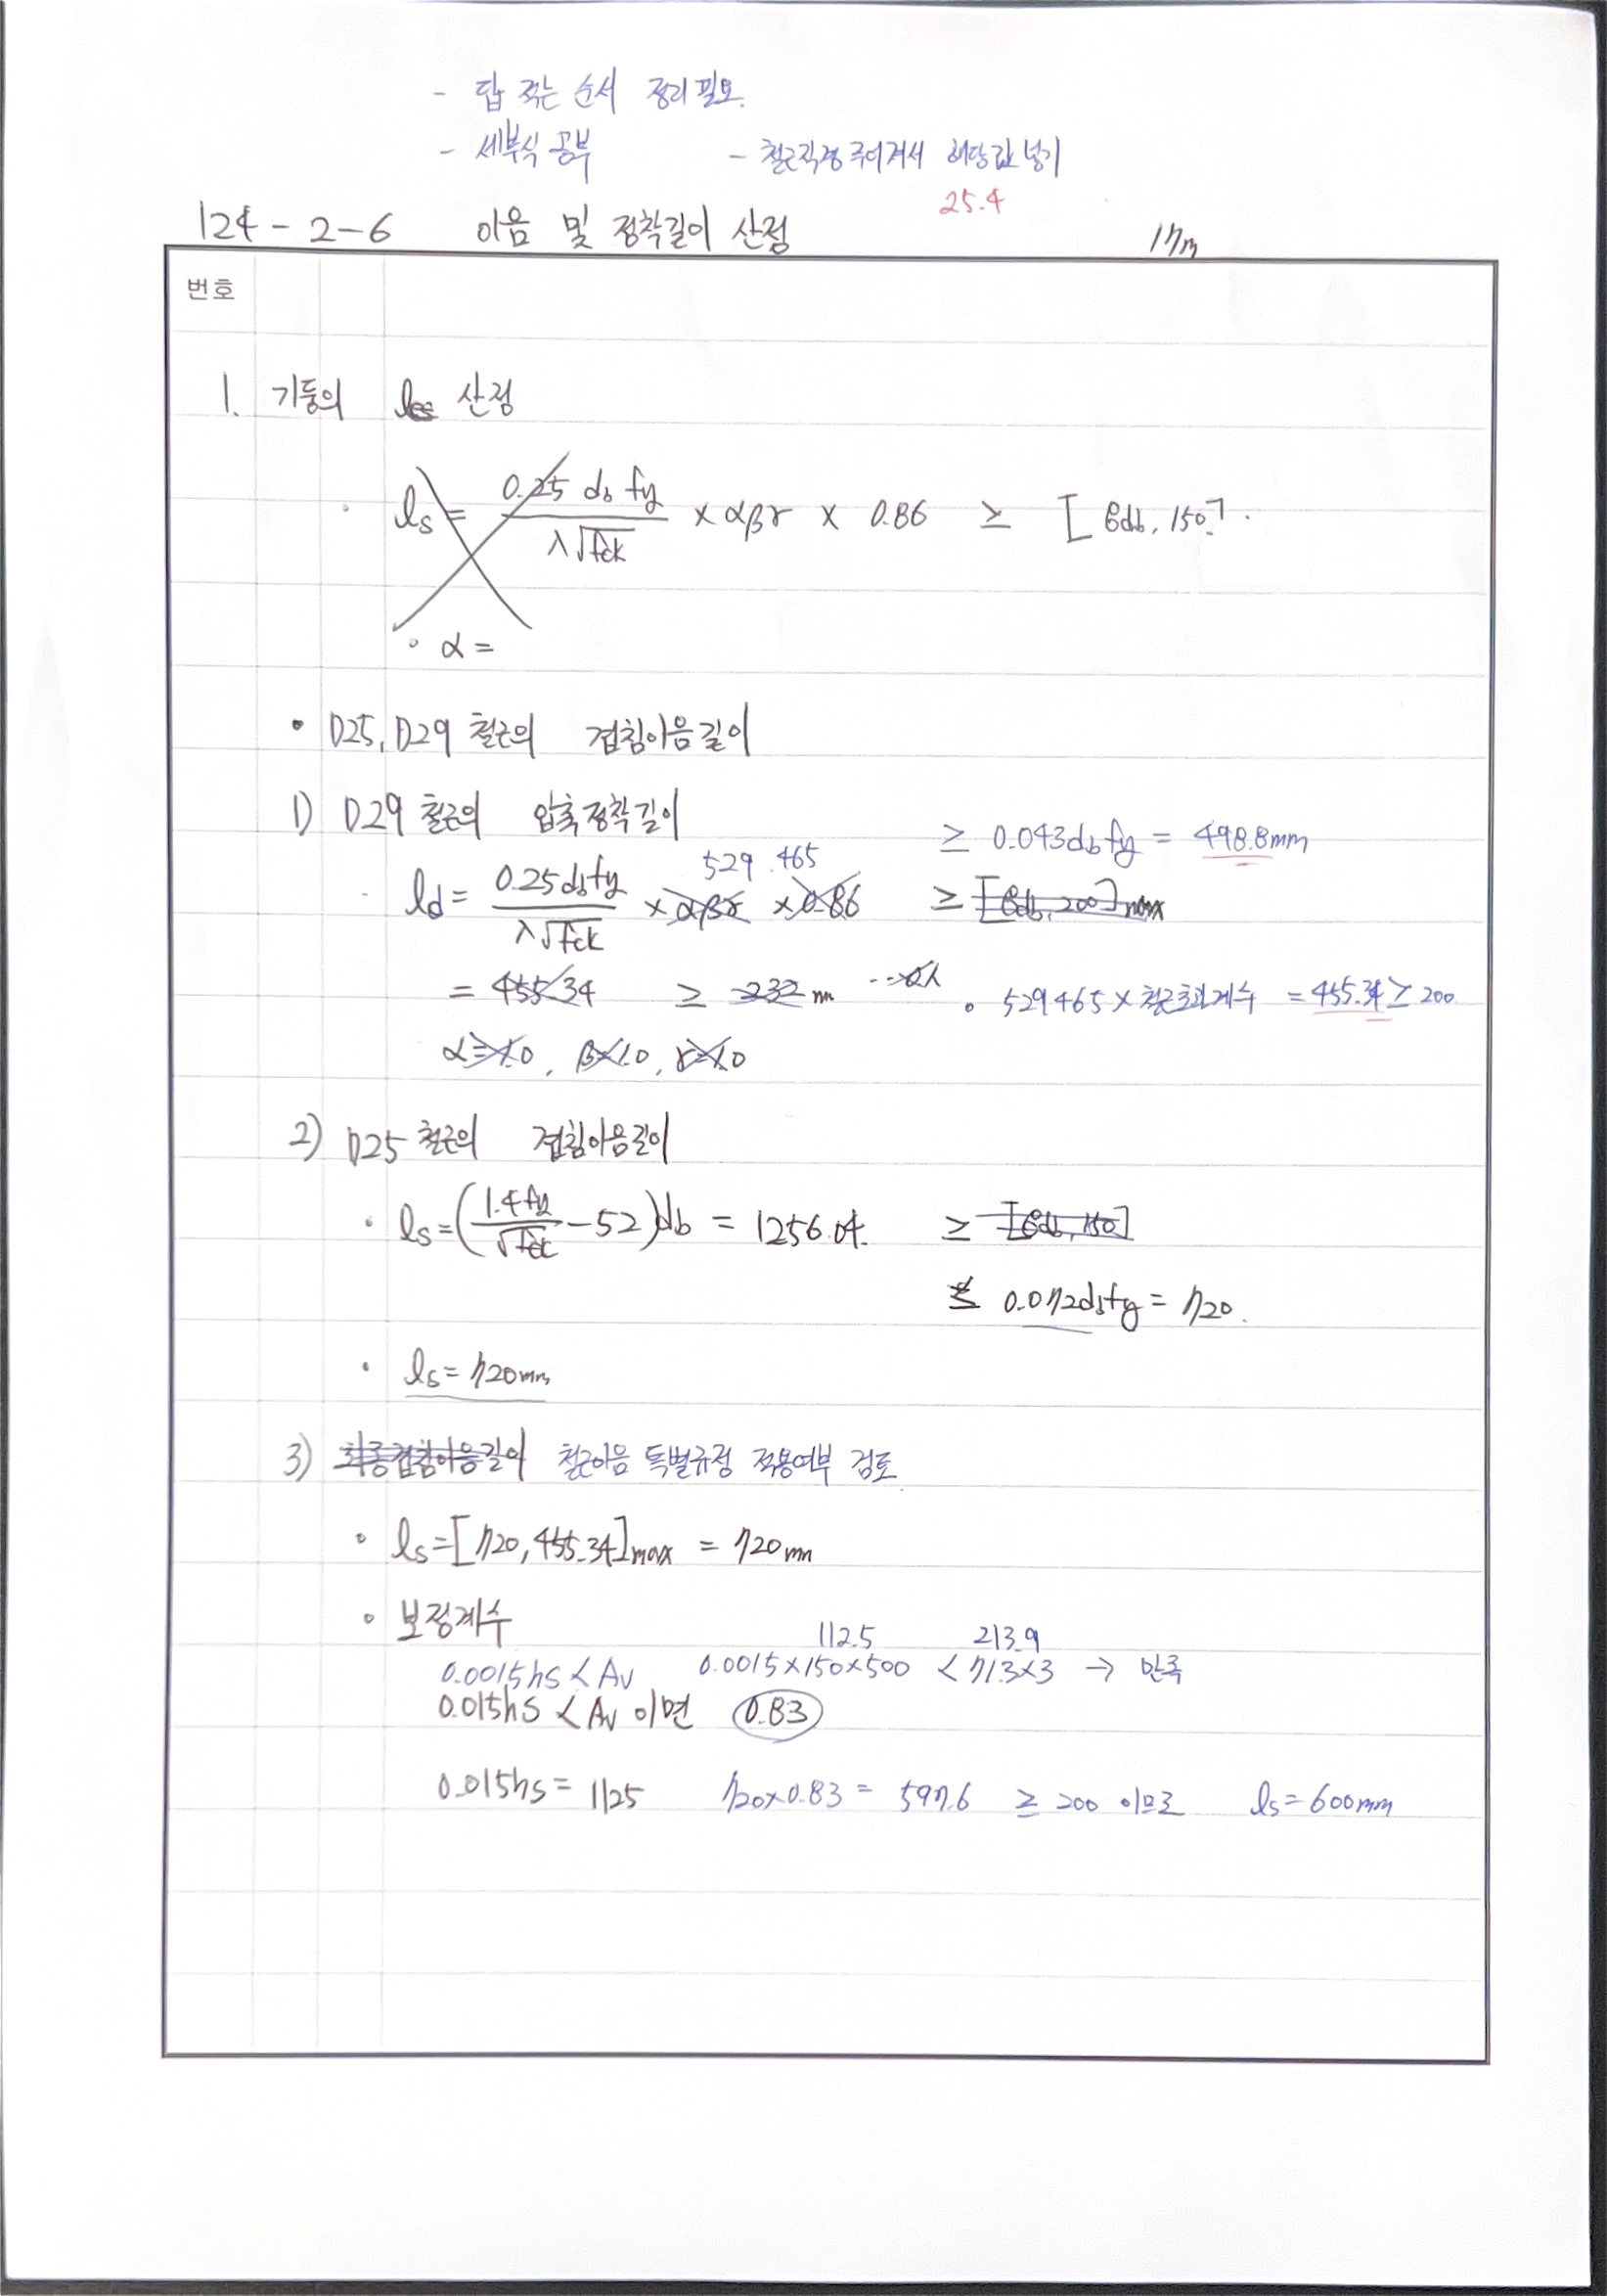 - 답 적는 순서 정리 필요.
- 세부식 공부 - 철근직경 주어져서 해당값 넣기
25.4
124-2-6 이음 및 정착길이 산정 17m
번호
1. 기둥의 산정
ls = 0.25 db fy / λ√fck × αβγ × 0.86 ≥ [8db, 150]
∘ α =
• D25, D29 철근의 겹침이음길이
1) D29 철근의 압축정착길이
≥ 0.043dbfy = 498.8mm
529.465
ld = 0.25dbfy / λ√fck × αβγ × 0.86 ≥ [8db, 200]max
= 455.34 ≥ 232 m
∘ 529.465 × 철근초과계수 = 455.34 ≥ 200
α=1.0, β=1.0, γ=1.0
2) D25 철근의 겹침이음길이
• ls = (1.4fy / √fck - 52)db = 1256.04. ≥ [8db, 150]
≤ 0.072dbfy = 720.
• ls = 720mm
3) 최종겹침이음길이 철근이음 특별규정 적용여부 검토
∘ ls = [720, 455.34]max = 720mm
∘ 보정계수
112.5 213.9
0.0015hs < Av 0.0015×150×500 < 71.3×3 → 만족
0.015hs < Av 이면 0.83
0.015hs = 1125 720×0.83 = 597.6 ≥ 200 이므로 ls = 600mm